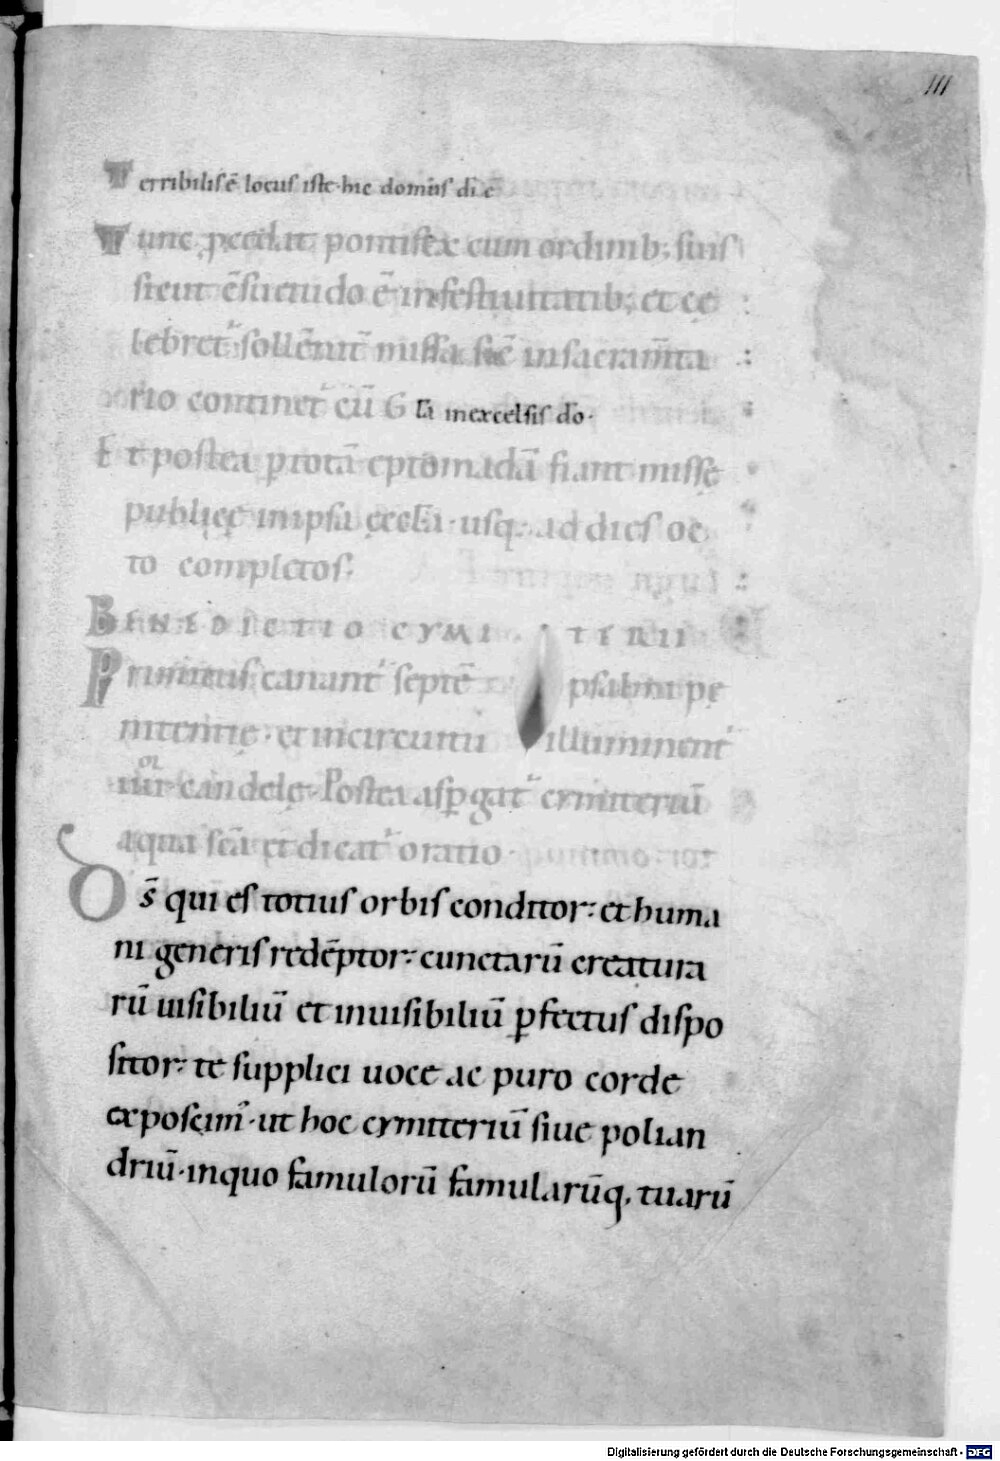 111
Terribilis ē locus iste · hic domus dī ē
Tunc pcedat pontifex cum ordinib; suis
sicut cēsuetudo ē in festiuitatib; et ce
lebret̃ sollēnit̃ missa sic̄ in sacram̄ta
rio continet̃ cū Gl̄a in excelsis dō ·
Et postea p totā eptomadā fiant missę
publicę in ipsa ęccl̄a · usq; ad dies oc
to completos:
BENEDICTIO CYMITERII
Primitus canant̃ septē psalmi pę
nitentię · et in circuitu illuminent̃
iiii or candelę. Postea aspgat̃ cymiteriū
aqua scā et dicat̃ oratio ·
Ds̄ qui es totius orbis conditor: et huma
ni generis redēptor: cunctarū creatura
rū uisibiliū et inuisibiliū pfectus dispo
sitor: te supplici uoce ac puro corde
exposcim̃ · ut hoc cymiteriū siue polian
driū · in quo famulorū famularūq, tuarū
Digitalisierung gefördert durch die Deutsche Forschungsgemeinschaft - DFG